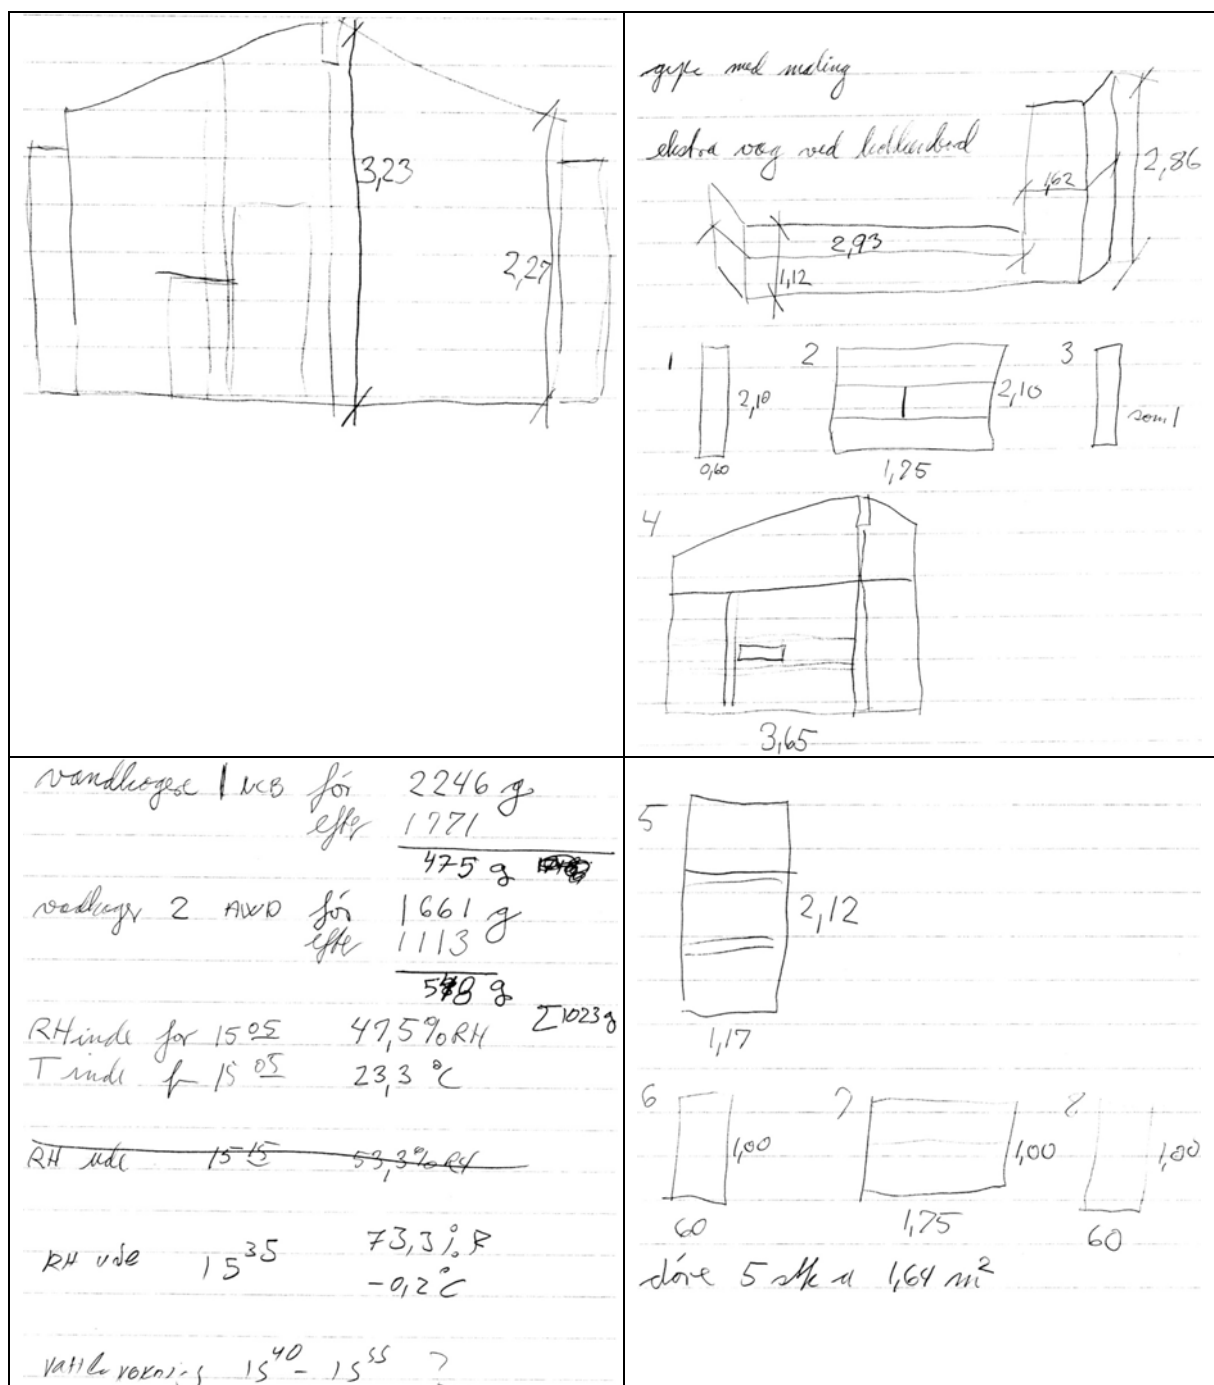 3,23
2,27
gips med maling
ekstra væg ved køkkenbord
2,86
1,62
2,93
1,12
1 2 3
2,10 2,10 som 1
0,60 1,75
4
3,65
vandkoger 1 NCB før 2246 g
efter 1771
475 g
vandkoger 2 AWD før 1661 g
efter 1113
548 g
Σ 1023 g
RH inde før 15 05 47,5 % RH
T inde f 15 05 23,3 °C
RH ude 15 15 53,3 % RH
RH ude 15 35 73,3 % R
-0,2 °C
15 40 - 15 55 ?
5
2,12
1,17
6 7 8
1,00 1,00 1,00
60 1,75 60
døre 5 stk a 1,64 m²